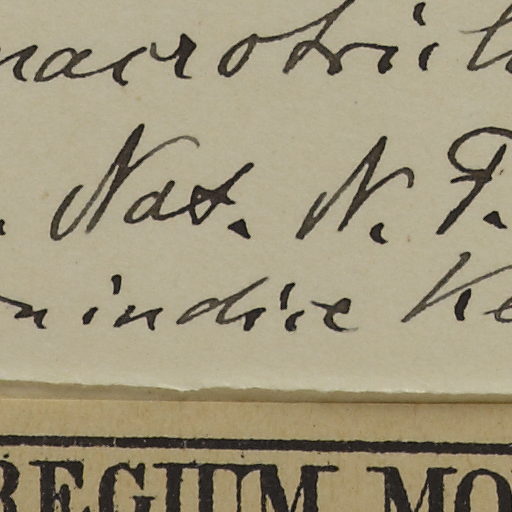 macrotrich
. Nat. N. F.
on indice Ke
REGIUM MO